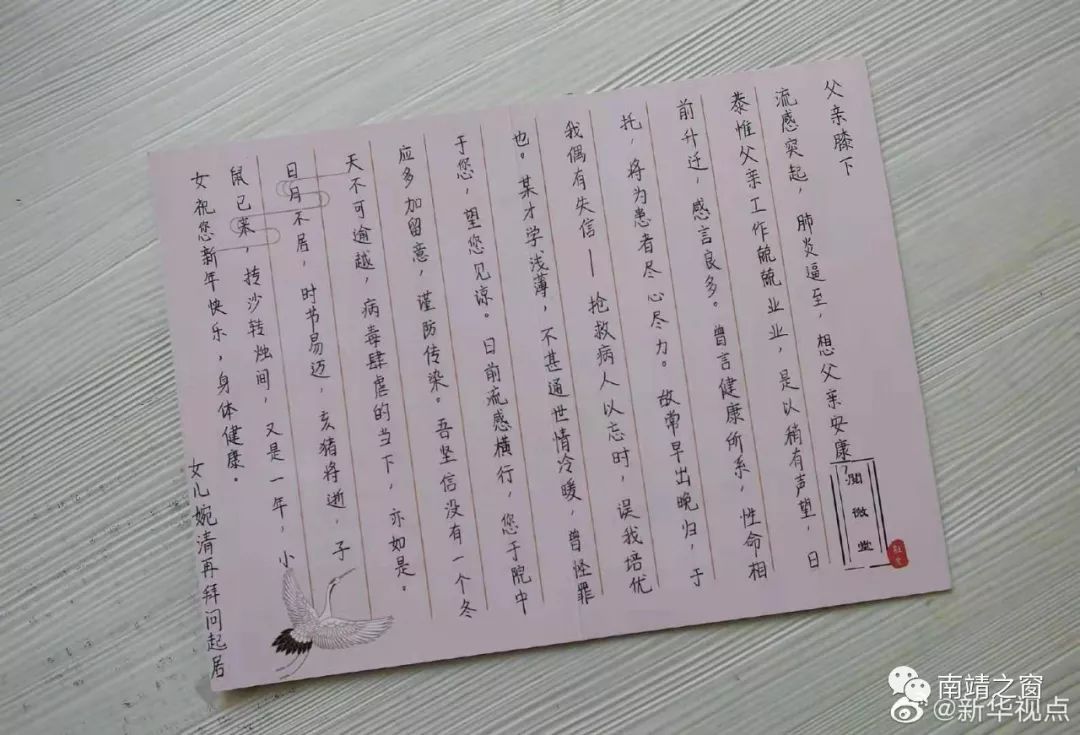 父亲膝下
流感突起，肺炎逼至，想父亲安康？
泰惟父亲工作兢兢业业，是以稍有声望，日
前升迁，感言良多。曾言健康所系，性命相
托，将为患者尽心尽力。故常早出晚归，于
我偶有失信——抢救病人以忘时，误我培优
也。某才学浅薄，不甚通世情冷暖，曾怪罪
于您，望您见谅。日前流感横行，您于院中
应多加留意，谨防传染。吾坚信没有一个冬
天不可逾越，病毒肆虐的当下，亦如是。
日月不居，时节易迈，亥猪将逝，子
鼠已来，抟沙转烛间，又是一年，小
女祝您新年快乐，身体健康。
女儿婉清再拜问起居
阅微堂
南靖之窗
@新华视点